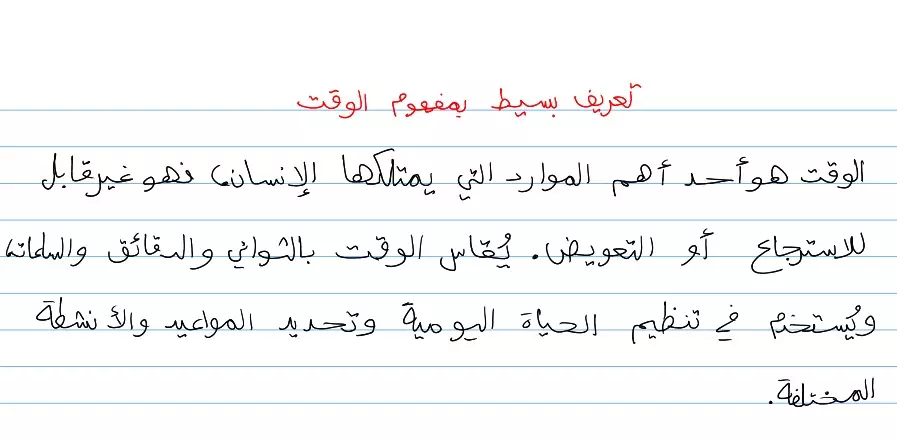 تعريف بسيط بمفهوم الوقت
الوقت هو أحد أهم الموارد التي يمتلكها الإنسان، فهو غير قابل
للاسترجاع أو التعويض. يُقاس الوقت بالثواني والدقائق والساعات،
ويُستخدم في تنظيم الحياة اليومية وتحديد المواعيد والأنشطة
المختلفة.